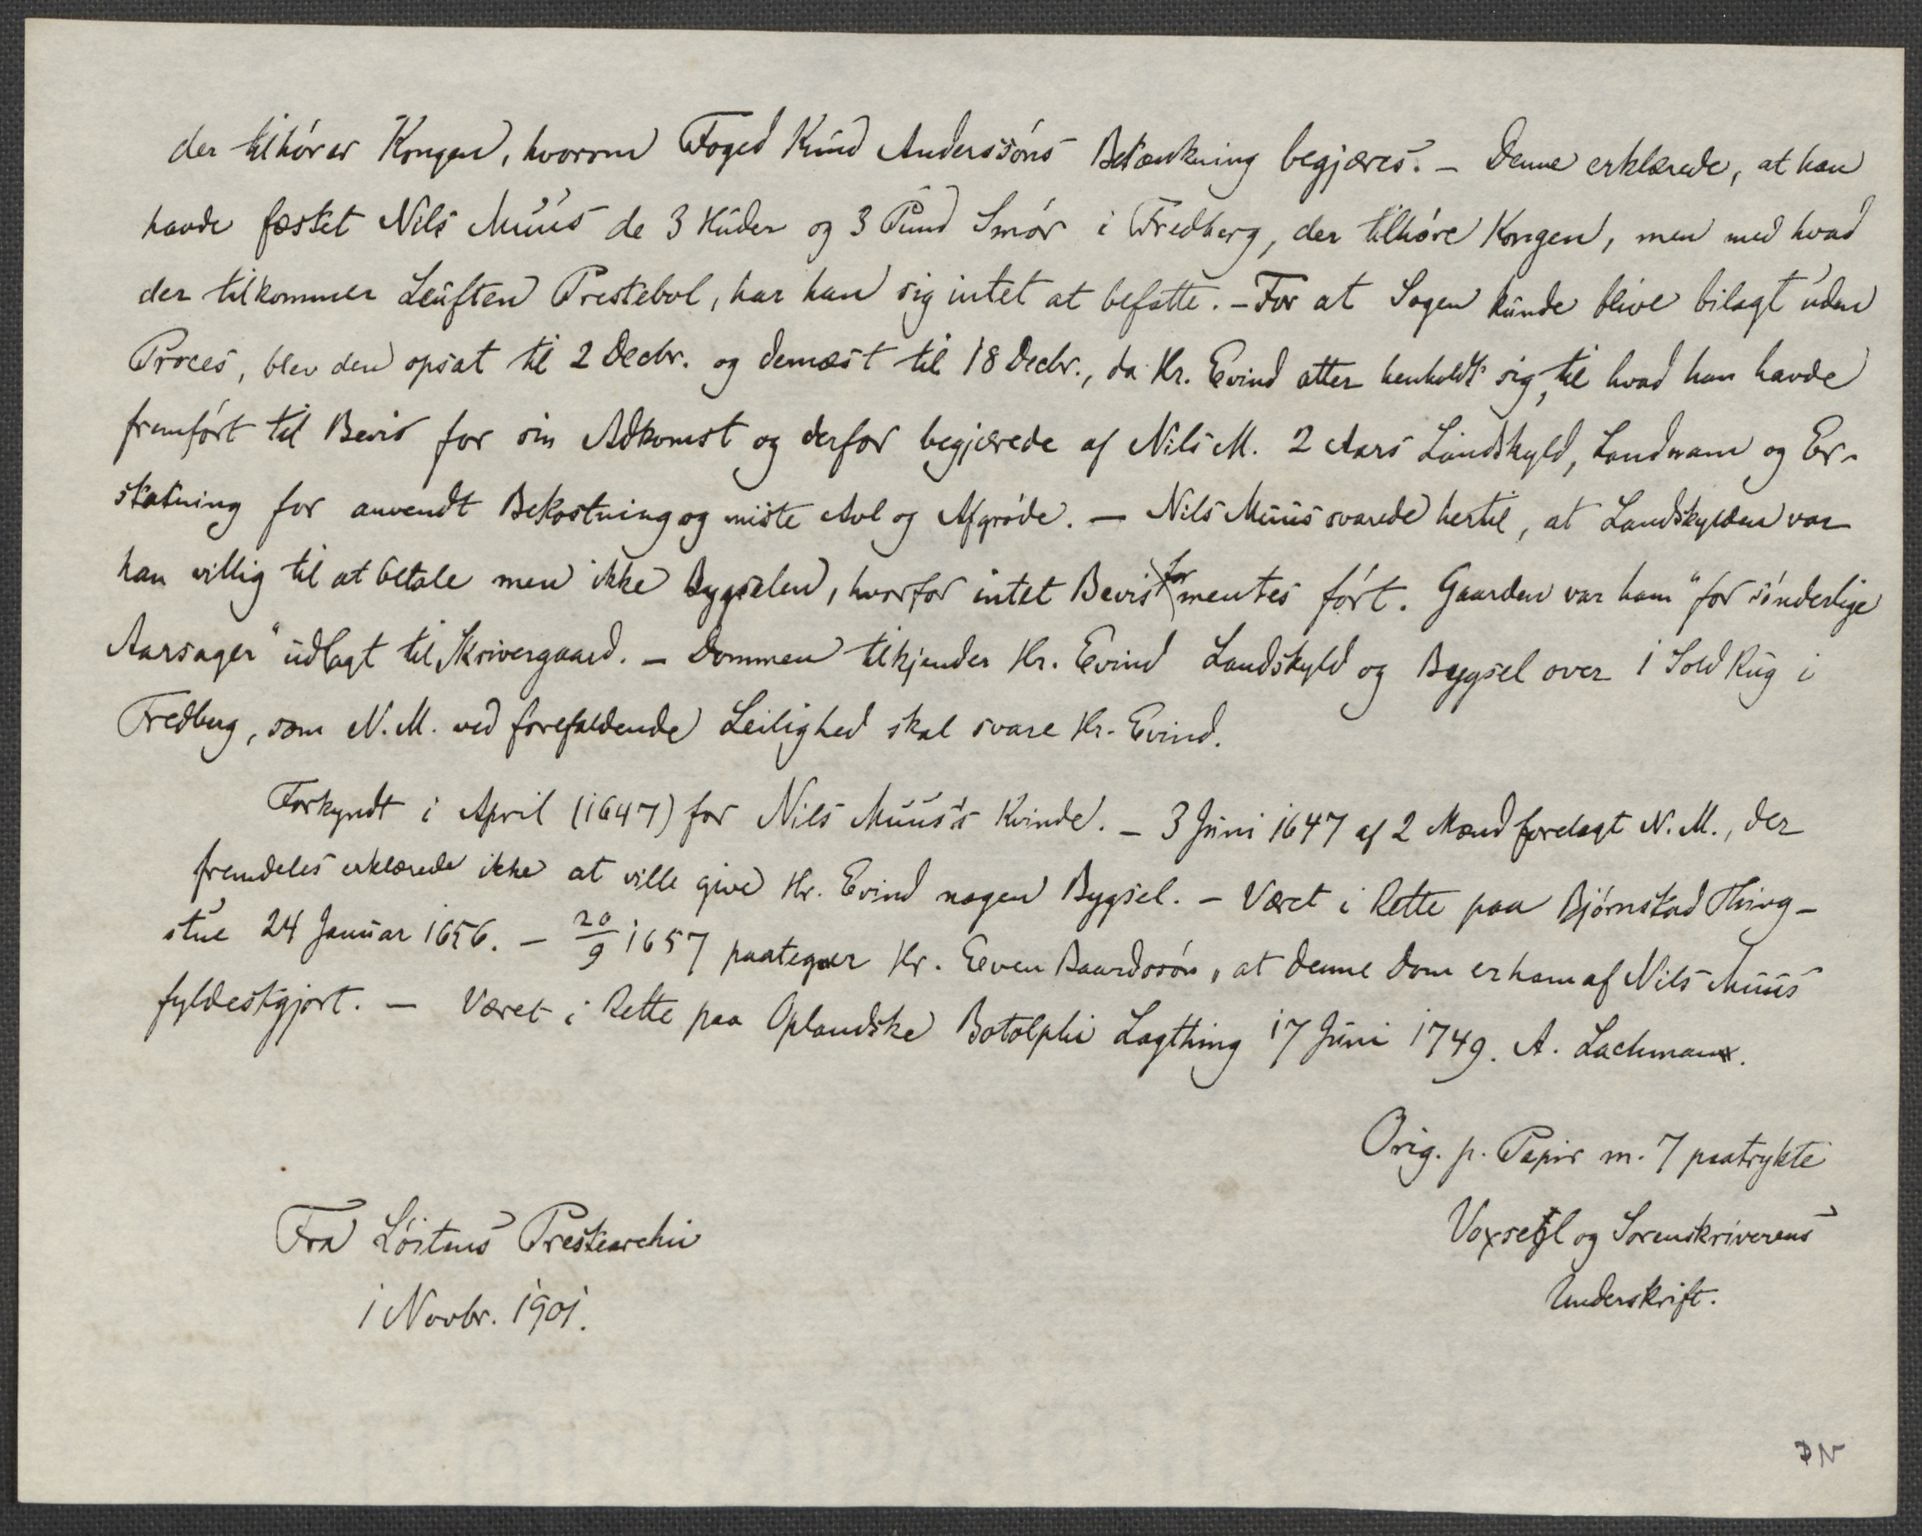 der tilhører Kongen, hvorom Foged Knud Anderssøns Betænkning begjæres. — Denne erklærede, at han
havde fæstet Nils Muus de 3 Huder og 3 Pund Smør i Fredberg, der tilhøre Kongen, men med hvad
der tilkommer Leuften Prestebol, har han sig intet at befatte. — For at Sagen kunde blive bilagt uden
Proces, blev den opsat til 2 Decbr. og dernæst til 18 Decbr., da Hr. Evind atter henholdt sig til hvad han havde
fremført til Bevis for sin Adkomst og derfor begjærede af Nils M. 2 Aars Landskyld, Landnam og Er-
statning for anvendt Bekostning og miste Avl og Afgrøde. — Nils Muus svarede hertil, at Landskylden var
han villig til at betale men ikke Bygselen, hvorfor intet Bevis for mentes ført. Gaarden var ham "for sønderlige
Aarsager" udlagt til Skrivergaard. — Dommen tilkjender Hr. Evind Landskyld og Bygsel over 1 Sold Rug i
Fredberg, som N. M. ved forefaldende Leilighed skal svare Hr. Evind.
Forkyndt i April (1647) for Nils Muus's Kvinde. — 3 Juni 1647 af 2 Mænd forelagt N. M., der
fremdeles erklærede ikke at ville give Hr. Evind nogen Bygsel. — Været i Rette paa Bjørnstad Thing-
stue 24 Januar 1656. — 20/9 1657 paategner Hr. Even Baardssøn, at denne Dom er ham af Nils Muus
fyldestgjort. — Været i Rette paa Oplandske Botolphi Lagthing 17 Juni 1749. A. Lachman.
Orig. p. Papir m. 7 paatrykte
Voxsegl og Sorenskriverens
Underskrift.
Fra Løitens Prestearchiv
i Novbr. 1901.
DN